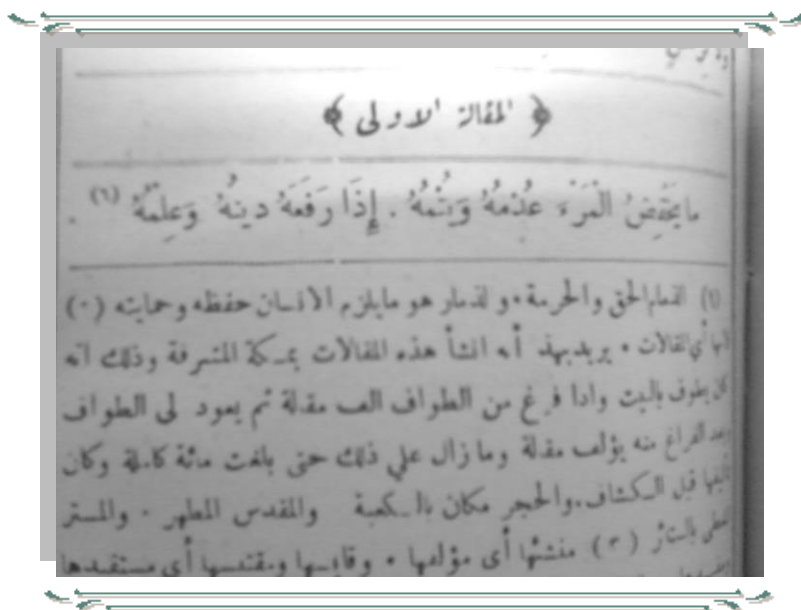 ﴿ المقالة الاولى ﴾
مَا يَخْفِضُ الْمَرْءَ عُدْمُهُ وَيُتْمُهُ . إِذَا رَفَعَهُ دينُهُ وَعِلْمُهُ (٦) .
(٦) الذمام الحق والحرمة • والذمار هو ما يلزم الانسان حفظه وحمايته (٠)
أي المقالات • يريد بهذ أنه انشأ هذه المقالات بمكة المشرفة وذلك انه
كان يطوف بالبيت واذا فرغ من الطواف الف مقالة ثم يعود لى الطواف
وبعد الفراغ منه يؤلف مقالة وما زال على ذلك حتى بلغت مائة كاملة وكان
تأليفها قبل الكشاف. والحجر مكان بالكعبة والمقدس المطهر . والمستر
المغطى بالستائر (٣) منشئها أى مؤلفها • وقابسها ومقتبسها أى مستفيدها